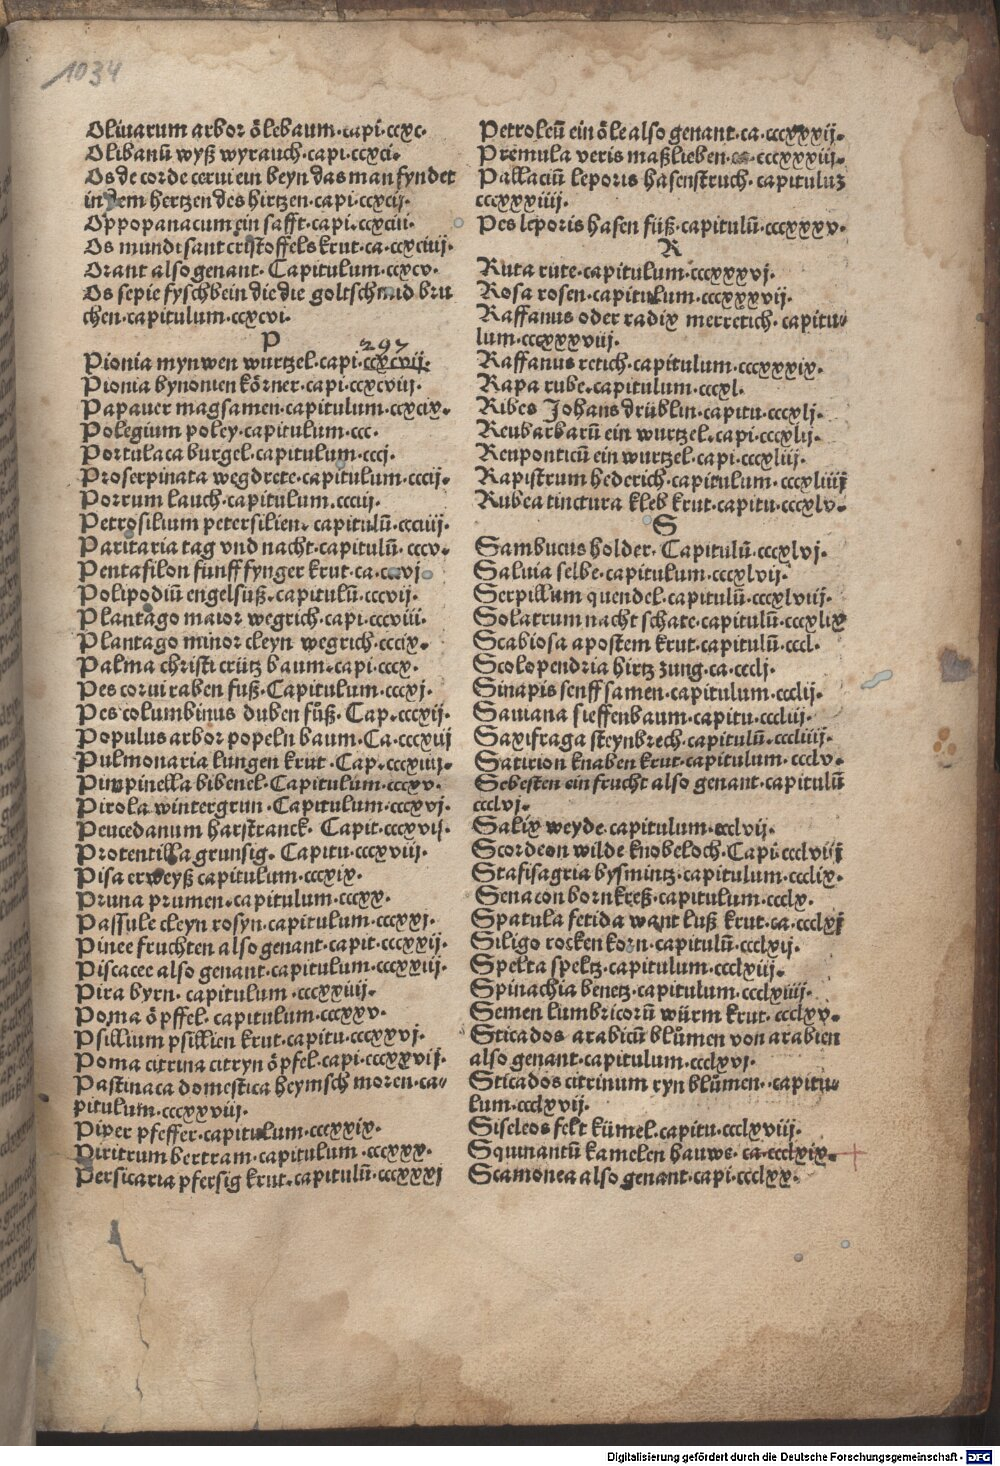 1034
Oliuarum arbor ölebaum·capi·ccxc·
Olibanū wyß wyrauch·capi·ccxci·
Os de corde cerui ein beyn das man fyndet
in dem hertzen des hirtzen·capi·ccxcij·
Oppopanacum ein safft·capi·ccxciii·
Os mundi sant cristoffels krut·ca·ccxciiij·
Orant also genant· Capitulum·ccxcv·
Os sepie fyschbein die die goltschmid bru
chen·capitulum·ccxcvi·
P
297
Pionia mynwen wurtzel·capi·ccxcvij·
Pionia bynonien körner·capi·ccxcviij·
Papauer magsamen·capitulum·ccxcix·
Polegium poley·capitulum·ccc·
Portulaca burgel·capitulum·cccj·
Proserpinata wegdrete·capitulum·cccij·
Porrum lauch·capitulum·ccciij·
Petrosilium petersilien·capitulū·ccciiij·
Paritaria tag vnd nacht·capitulū·cccv·
Pentafilon funff fynger krut·ca·cccvj
Polipodiū engelsuß·capitulū·cccvij·
Plantago maior wegrich·capi·cccviii·
Plantago minor cleyn wegrich·cccix·
Palma christi crütz baum·capi·cccx·
Pes corui raben fuß·Capitulum·cccxj·
Pes columbinus duben füß· Cap·cccxij·
Populus arbor popeln baum·Ca·cccxiij
Pulmonaria lungen krut·Cap·cccxiiij·
Pimpinella bibenel·Capitulum·cccxv·
Pirola wintergrun·Capitulum·cccxvj·
Peucedanum harstranck· Capit·cccxvij·
Protentilla grunsig· Capitu·cccxviij·
Pisa erweyß capitulum·cccxix·
Pruna prumen·capitulum·cccxx·
Passule cleyn rosyn·capitulum·cccxxj·
Pinee fruchten also genant·capit·cccxxij·
Piscacee also genant·capitulum·cccxxiij·
Pira byrn· capitulum·cccxxiiij·
Poma öpffel· capitulum·cccxxv·
Psillium psillien krut·capitu·cccxxvj·
Poma citrina citryn öpfel·capi·cccxxvij·
Pastinaca domestica heymsch moren·ca-
pitulum·cccxxviij·
Piper pfeffer·capitulum·cccxxix·
Piritrum bertram·capitulum·cccxxx·
Persicaria pfersig krut·capitulū·cccxxxj
Petroleū ein öle also genant·ca·cccxxxij·
Premula veris maßlieben· cccxxxiij·
Pallaciū leporis hasenstruch·capituluz
cccxxxiiij·
Pes leporis hasen füß·capitulū·cccxxxv·
R
Ruta rute·capitulum·cccxxxvj·
Rosa rosen·capitulum·cccxxxvij·
Raffanus oder radix merretich· capitu-
lum·cccxxxviij·
Raffanus retich·capitulum·cccxxxix·
Rapa rube·capitulum·cccxl·
Ribes Johans drüblin·capitu·cccxlj·
Reubarbarū ein wurtzel·capi·cccxlij·
Reuponticū ein wurtzel·capi·cccxliij·
Rapistrum hederich·capitulum·cccxliiij
Rubea tinctura kleb krut·capitu·cccxlv·
S
Sambucus holder· Capitulū·cccxlvj·
Saluia selbe·capitulum·cccxlvij·
Serpillum quendel·capitulū·cccxlviij·
Solatrum nacht schate·capitulū·cccxlix
Scabiosa apostem krut·capitulū·cccl·
Scolopendria hirtz zung·ca·ccclj·
Sinapis senff samen·capitulum·ccclij·
Sauiana sieffenbaum·capitu·cccliij·
Saxifraga steynbrech·capitulū·cccliiij·
Satirion knaben krut·capitulum·ccclv·
Sebesten ein frucht also genant·capitulū
ccclvj·
Salix weyde·capitulum·ccclvij·
Scordeon wilde knobeloch·Capi·ccclviij
Stafisagria bysmintz·capitulum·ccclix·
Senacon bornkreß·capitulum·ccclx·
Spatula fetida want luß krut·ca·ccclxj
Siligo rocken korn·capitulū·ccclxij·
Spelta speltz·capitulum·ccclxiij·
Spinachia benetz·capitulum·ccclxiiij·
Semen lumbricorū würm krut·ccclxv·
Sticados arabicū blůmen von arabien
also genant·capitulum·ccclxvj·
Sticados citrinum ryn blůmen·capitu-
lum·ccclxvij·
Siseleos felt kümel·capitu·ccclxviij·
Squinantū kamelen hauwe·ca·ccclxix·
Scamonea also genant·capi·ccclxx·
Digitalisierung gefördert durch die Deutsche Forschungsgemeinschaft - DFG